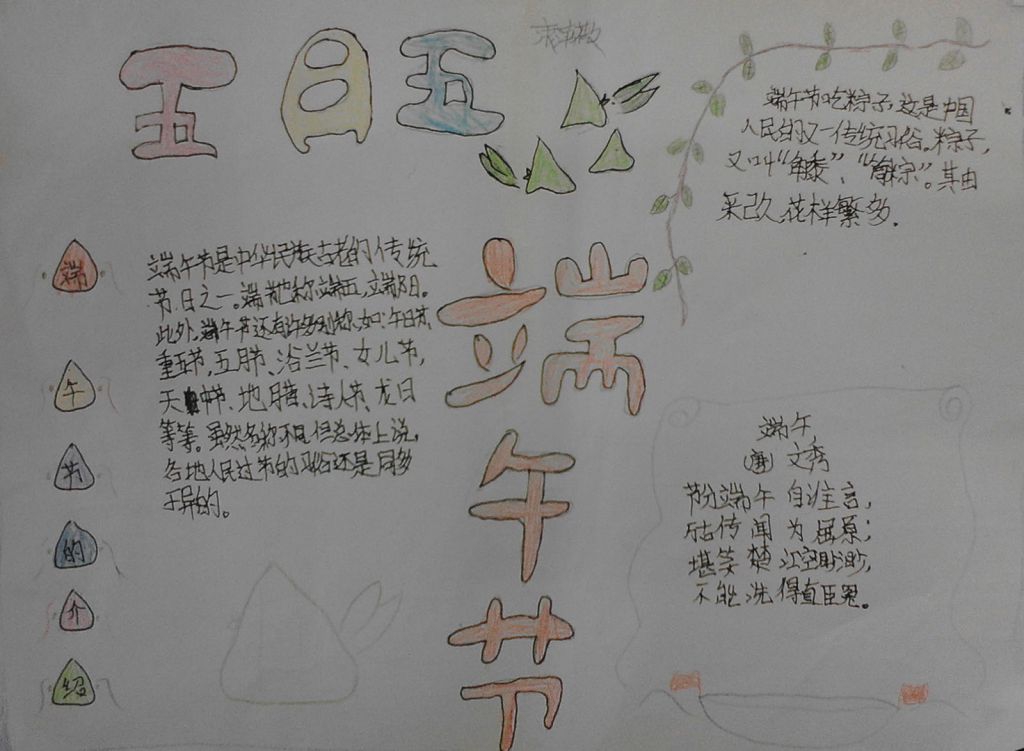 五月五
端午节吃粽子,这是中国
人民的又一传统习俗。粽子,
又叫“角黍”、“筒粽”。其由
来已久,花样繁多.
端午节的介绍
端午节是中华民族古老的传统
节日之一。端午也称端五,端阳。
此外,端午节还有许多别称,如:午日节、
重五节,五月节、浴兰节、女儿节,
天中节、地腊、诗人节、龙日
等等。虽然名称不同,但总体上说,
各地人民过节的习俗还是同多
于异的。
端午节
端午
(唐) 文秀
节分端午 自谁言,
万古传闻为屈原;
堪笑楚江空渺渺,
不能洗得直臣冤。